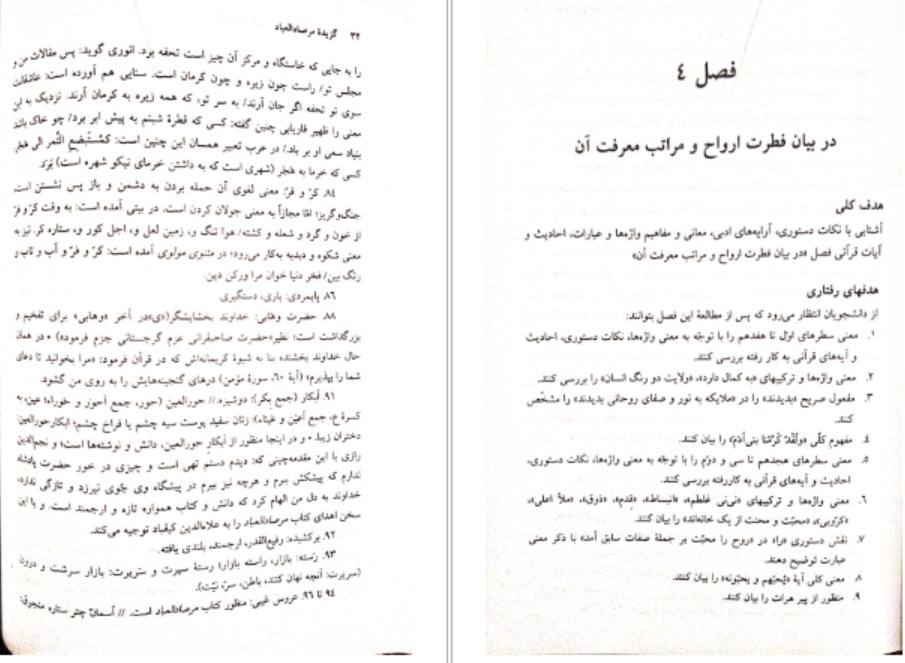 ۳۲ گزیدهٔ مرصادالعباد
را به جایی که خاستگاه و مرکز آن چیز است تحفه برد. انوری گوید: پس مقالات من و
مجلس تو/ راست چون زیره و چون کرمان است. سنایی هم آورده است: عاشقانت
سوی تو تحفه اگر جان آرند/ به سر تو، که همه زیره به کرمان آرند. نزدیک به این
معنی را ظهیر فاریابی چنین گفته: کسی که قطرهٔ شبنم به پیش ابر برد/ چو خاک باشد
بنیاد سعی او بر باد./ در عرب تعبیر همسان این چنین است: کمُستَبضع التَّمر الی هَجَر
کسی که خرما به هَجَر (شهری است که به داشتن خرمای نیکو شهره است) بَرَد.
۸۴. کرّ و فرّ: معنی لغوی آن حمله بردن به دشمن و باز پس نشستن است
جنگ‌وگریز؛ امّا مجازاً به معنی جولان کردن است. در بیتی آمده است: به وقت کرّ و فرّ
از خون و گرد و شعله و کشته/ هوا تنگ و، زمین لعل و، اجل کور و، ستاره کر. نیز به
معنی شکوه و دبدبه به‌کار می‌رود؛ در مثنوی مولوی آمده است: کرّ و فرّ و آب و تاب و
رنگ بین/ فخر دنیا خوان مرا ورکن دین.
۸۶. پایمردی: یاری، دستگیری.
۸۸. حضرت وهّابی: خداوند بخشایشگر(«ی»در آخر «وهابی» برای تفخیم و
بزرگداشت است؛ نظیر:حضرت صاحبقرانی عزم گرجستانی جزم فرمود) • در همان
حال خداوند بخشنده بنا به شیوهٔ کریمانه‌اش که در قرآن فرمود: «مرا بخوانید تا دعای
شما را بپذیرم» (آیهٔ ۶۰، سورهٔ مؤمن) درهای گنجینه‌هایش را به روی من گشود.
۹۱. اَبکار (جمع بِکر): دوشیزه // حورالعین (حور، جمع اَحوَر و حَوراء؛ عین: به
کسرهٔ ع، جمع اَعیَن و عَیناء): زنان سفید پوست سیه چشم یا فراخ چشم؛ ابکارحورالعین:
دختران زیبا. • و در اینجا منظور از اَبکارِ حورالعین، دانش و نوشته‌ها است؛ و نجم‌الدین
رازی با این مقدمه‌چینی که: دیدم دستم تهی است و چیزی در خور حضرت پادشاه
ندارم که پیشکش ببرم و هرچه نیز ببرم در پیشگاه وی جُوی نیرزد و تازگی ندارد،
خداوند به دل من الهام کرد که دانش و کتاب همواره تازه و ارجمند است. و با این
سخن اهدای کتاب مرصادالعباد را به علاءالدین کیقباد توجیه می‌کند.
۹۲. برکشیده: رفیع‌القدر، ارجمند، بلندی یافته.
۹۳. رَسته: بازار، راسته بازار؛ رستهٔ سیرت و سَریرت: بازار سرشت و درون
(سریرت: آنچه نهان کنند، باطن، سرّ، نیّت).
۹۴ تا ۹۶. عروس غیبی: منظور کتاب مرصادالعباد است. // آسمان چتر ستاره
فصل ۴
در بیان فطرت ارواح و مراتب معرفت آن
هدف کلی
آشنایی با نکات دستوری، آرایه‌های ادبی، معانی و مفاهیم واژه‌ها و عبارات، احادیث و
آیات قرآنی فصل «در بیان فطرت ارواح و مراتب معرفت آن»
هدفهای رفتاری
از دانشجویان انتظار می‌رود که پس از مطالعهٔ این فصل بتوانند:
۱. معنی سطرهای اوّل تا هفدهم را با توجّه به معنی واژه‌ها، نکات دستوری، احادیث
و آیه‌های قرآنی به کار رفته بررسی کنند.
۲. معنی واژه‌ها و ترکیبهای «به کمال دارد»، «ولایت دو رنگ انسان» را بررسی کنند.
۳. مفعول صریح «بدیدند» را در «ملایکه به نور و صفای روحانی بدیدند» را مشخّص
کنند.
۴. مفهوم کلّی «ولَقَدْ کَرَّمْنا بنی‌آدَمَ» را بیان کنند.
۵. معنی سطرهای هجدهم تا سی و دوّم را با توجّه به معنی واژه‌ها، نکات دستوری،
احادیث و آیه‌های قرآنی به کاررفته بررسی کنند.
۶. معنی واژه‌ها و ترکیبهای «نی‌نی غلطم»، «انبساط»، «قِدم»، «ذوق»، «ملأ اعلی»،
«کرّوبی»، «محبّت و محنت از یک خانه‌اند» را بیان کنند.
۷. نقش دستوری «را» در «روح را محبّت بر جملهٔ صفات سابق آمد» با ذکر معنی
عبارت توضیح دهند.
۸. معنی کلی آیهٔ «یُحبّهم و یحبّونه» را بیان کنند.
۹. منظور از پیر هرات را بیان کنند.